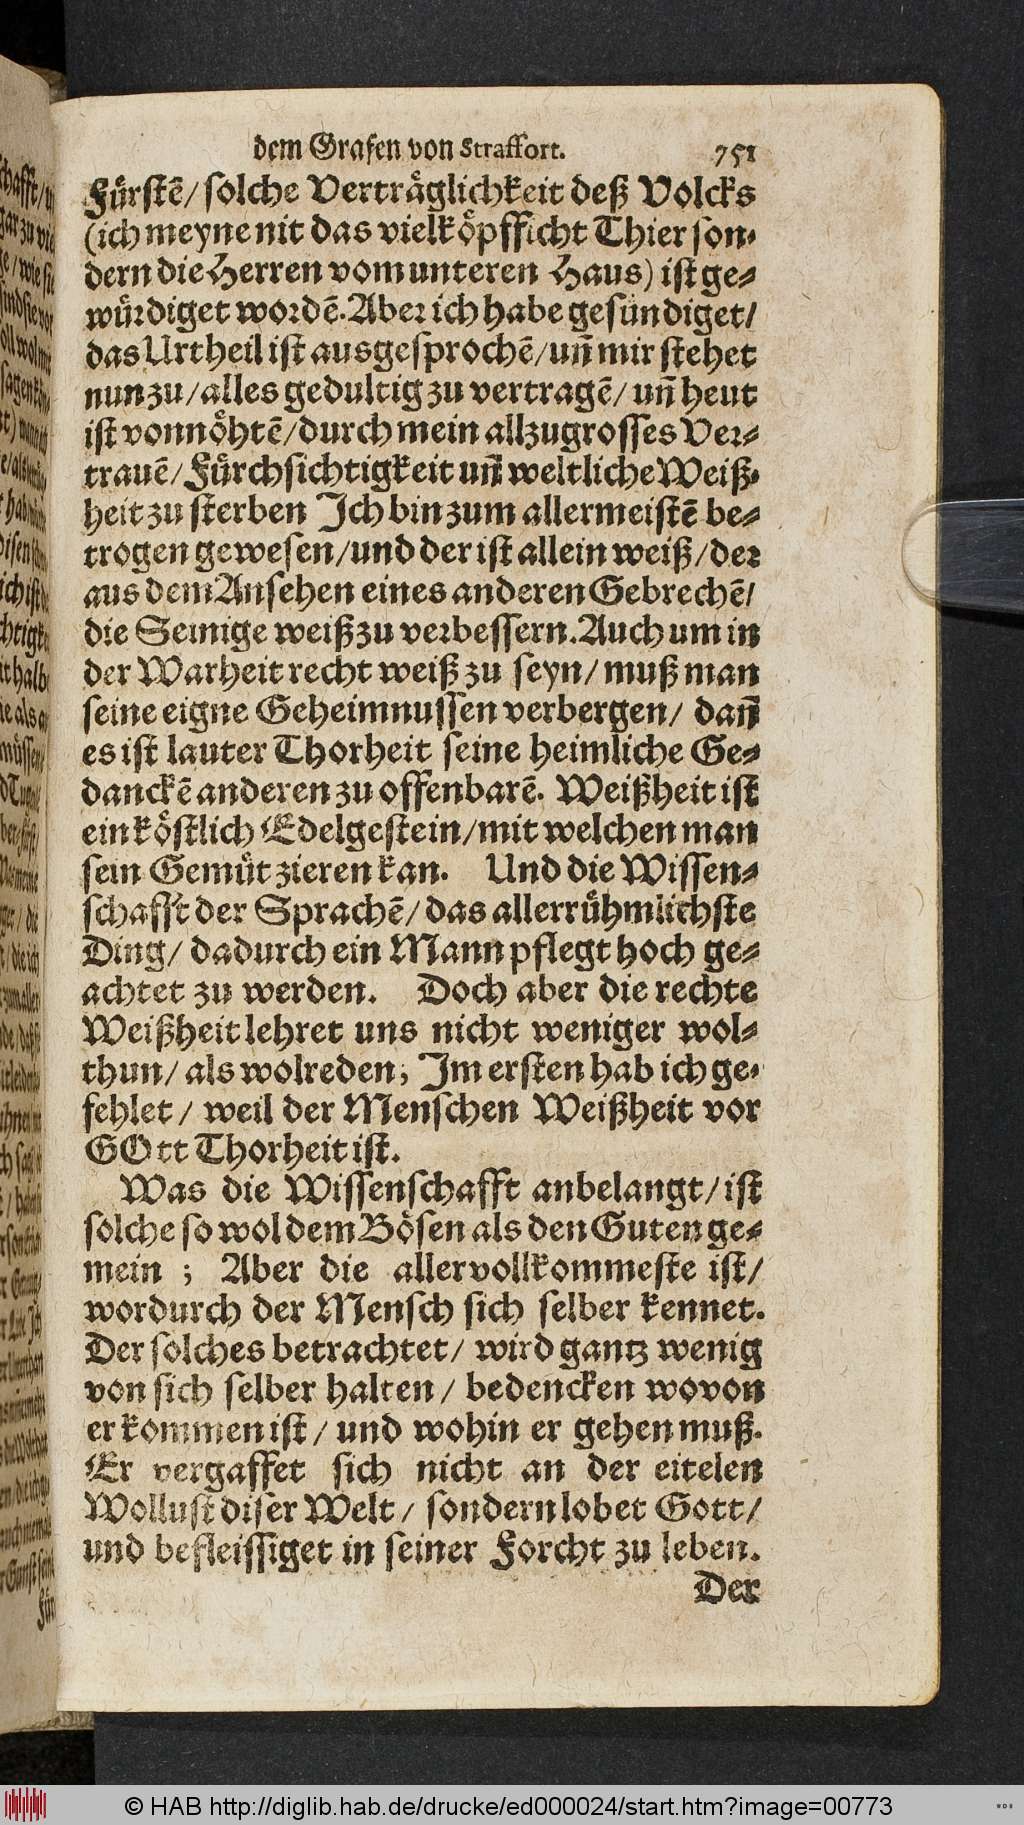 dem Grafen von Straffort. 751
Fürstē/ solche Verträglichkeit deß Volcks
(ich meyne nit das vielköpfficht Thier son-
dern die Herren vom unteren Haus) ist ge-
würdiget wordē. Aber ich habe gesündiget/
das Urtheil ist ausgesprochē/ uñ mir stehet
nun zu/ alles gedultig zu vertragē/ uñ heut
ist vonnöhtē/ durch mein allzugrosses Ver-
trauē/ Fürchsichtigkeit uñ weltliche Weiß-
heit zu sterben Ich bin zum allermeistē be-
trogen gewesen/ und der ist allein weiß/ der
aus dem Ansehen eines anderen Gebrechē/
die Seinige weiß zu verbessern. Auch um in
der Warheit recht weiß zu seyn/ muß man
seine eigne Geheimnussen verbergen/ dañ
es ist lauter Thorheit seine heimliche Ge-
danckē anderen zu offenbarē. Weißheit ist
ein köstlich Edelgestein/ mit welchen man
sein Gemüt zieren kan. Und die Wissen-
schafft der Sprachē/ das allerrühmlichste
Ding/ dadurch ein Mann pflegt hoch ge-
achtet zu werden. Doch aber die rechte
Weißheit lehret uns nicht weniger wol-
thun/ als wolreden; Im ersten hab ich ge-
fehlet/ weil der Menschen Weißheit vor
GOtt Thorheit ist.
Was die Wissenschafft anbelangt/ ist
solche so wol dem Bösen als den Guten ge-
mein ; Aber die allervollkommeste ist/
wordurch der Mensch sich selber kennet.
Der solches betrachtet/ wird gantz wenig
von sich selber halten/ bedencken wovon
er kommen ist/ und wohin er gehen muß.
Er vergaffet sich nicht an der eitelen
Wollust diser Welt/ sondern lobet Gott/
und befleissiget in seiner Forcht zu leben.
Der
© HAB http://diglib.hab.de/drucke/ed000024/start.htm?image=00773